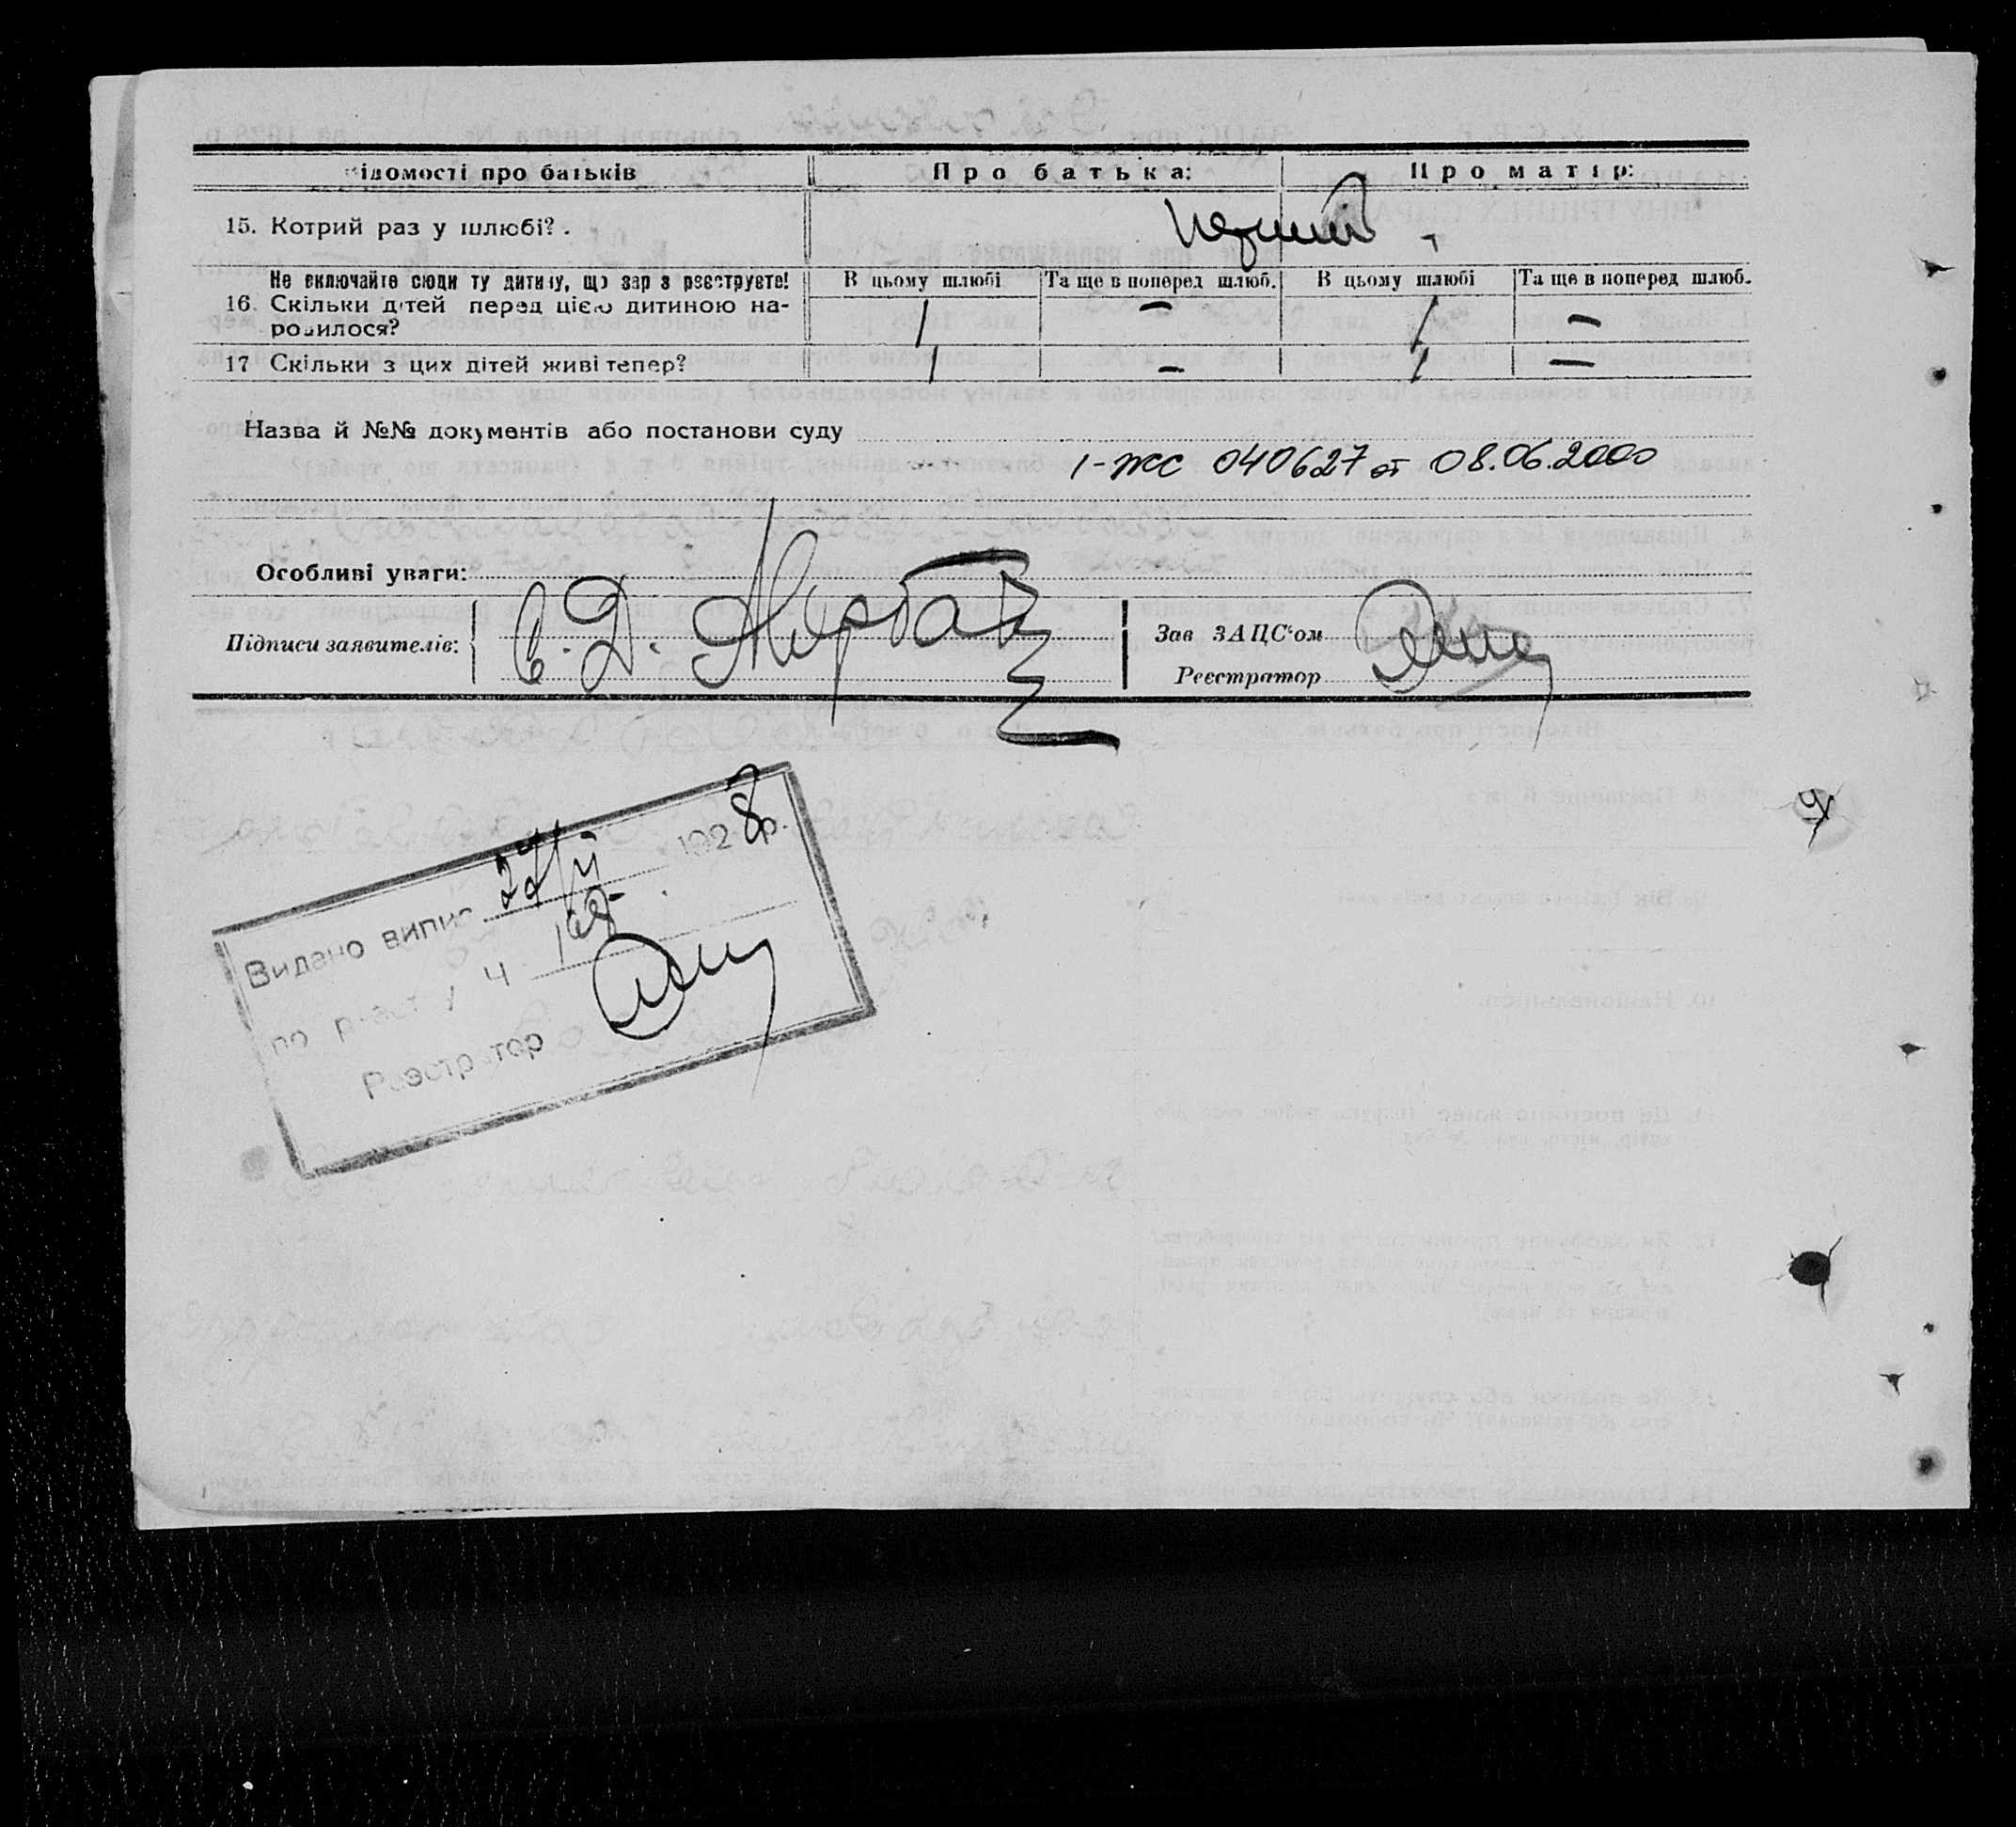 ідомості про батьків Про батька: Про матір:
15. Котрий раз у шлюбі? . перший
Не включайте сюди ту дитину, що зараз реєструєте! В цьому шлюбі Та ще в поперед шлюб. В цьому шлюбі Та ще в поперед шлюб.
16. Скільки дітей перед цією дитиною на- 1 — 1 —
родилося?
17 Скільки з цих дітей живі тепер? 1 — 1 —
Назва й №№ документів або постанови суду
1-ЖС 040627 от 08.06.2000
Особливі уваги:
Підписи заявителів: Є. Д.
Зав ЗАЦС‘ом
Реєстратор
Видано випис 1928р.
по реєстру Ч
Реєстратор